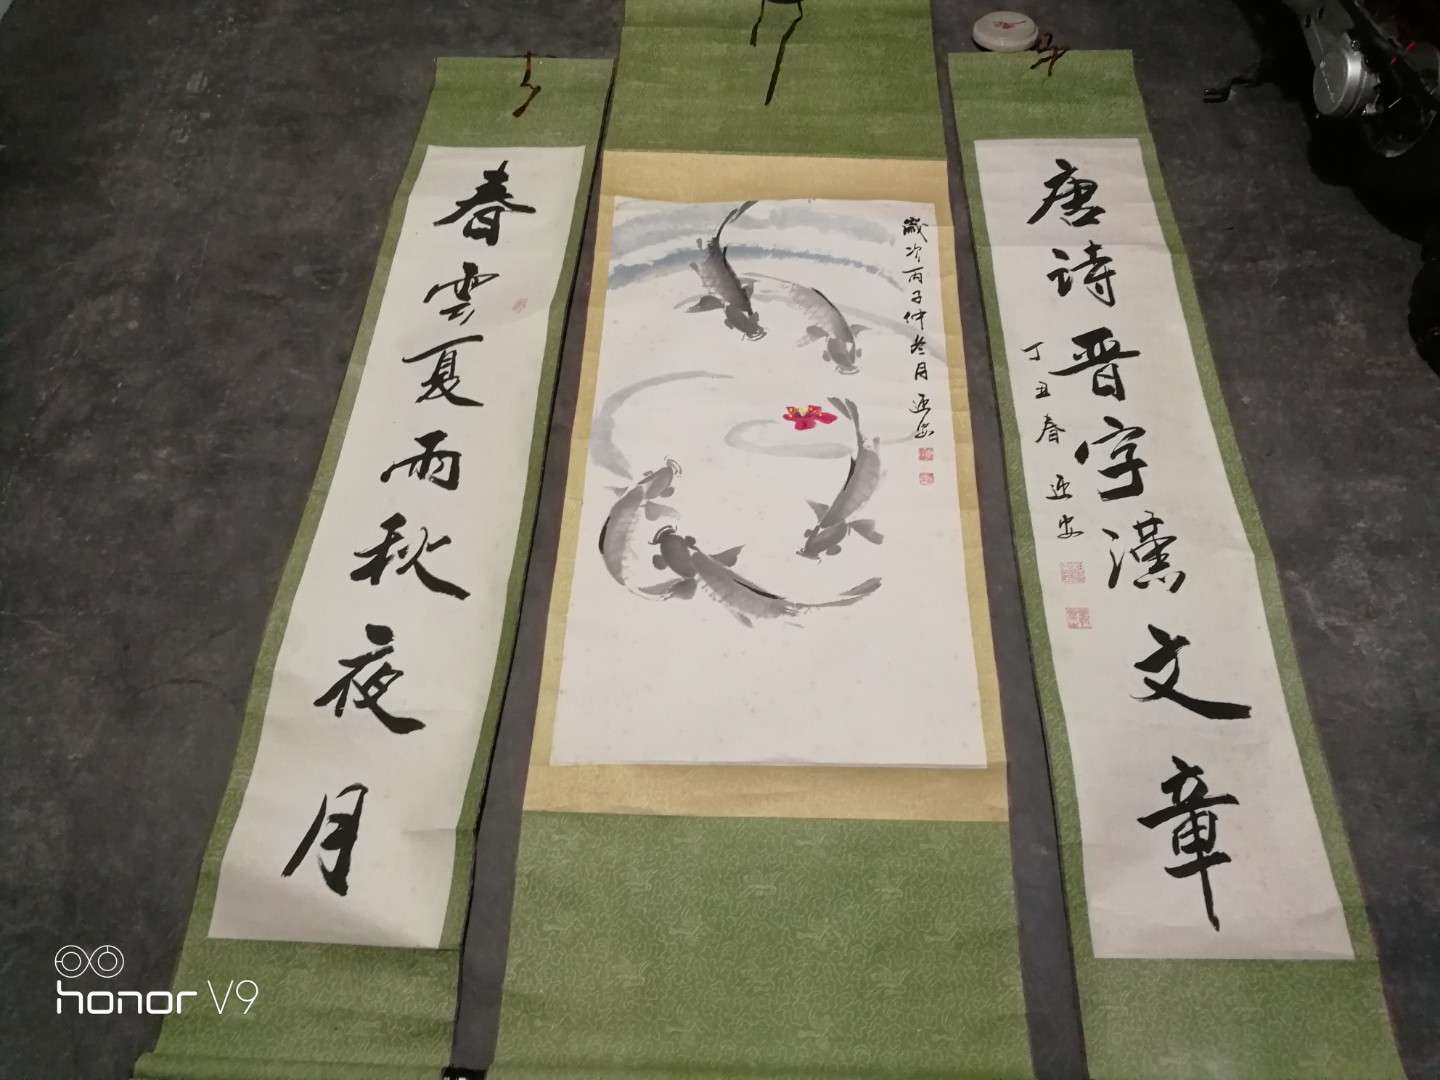 春雲夏雨秋夜月
歲次丙子仲冬月
唐诗晋字漢文章
丁丑春
honor V9